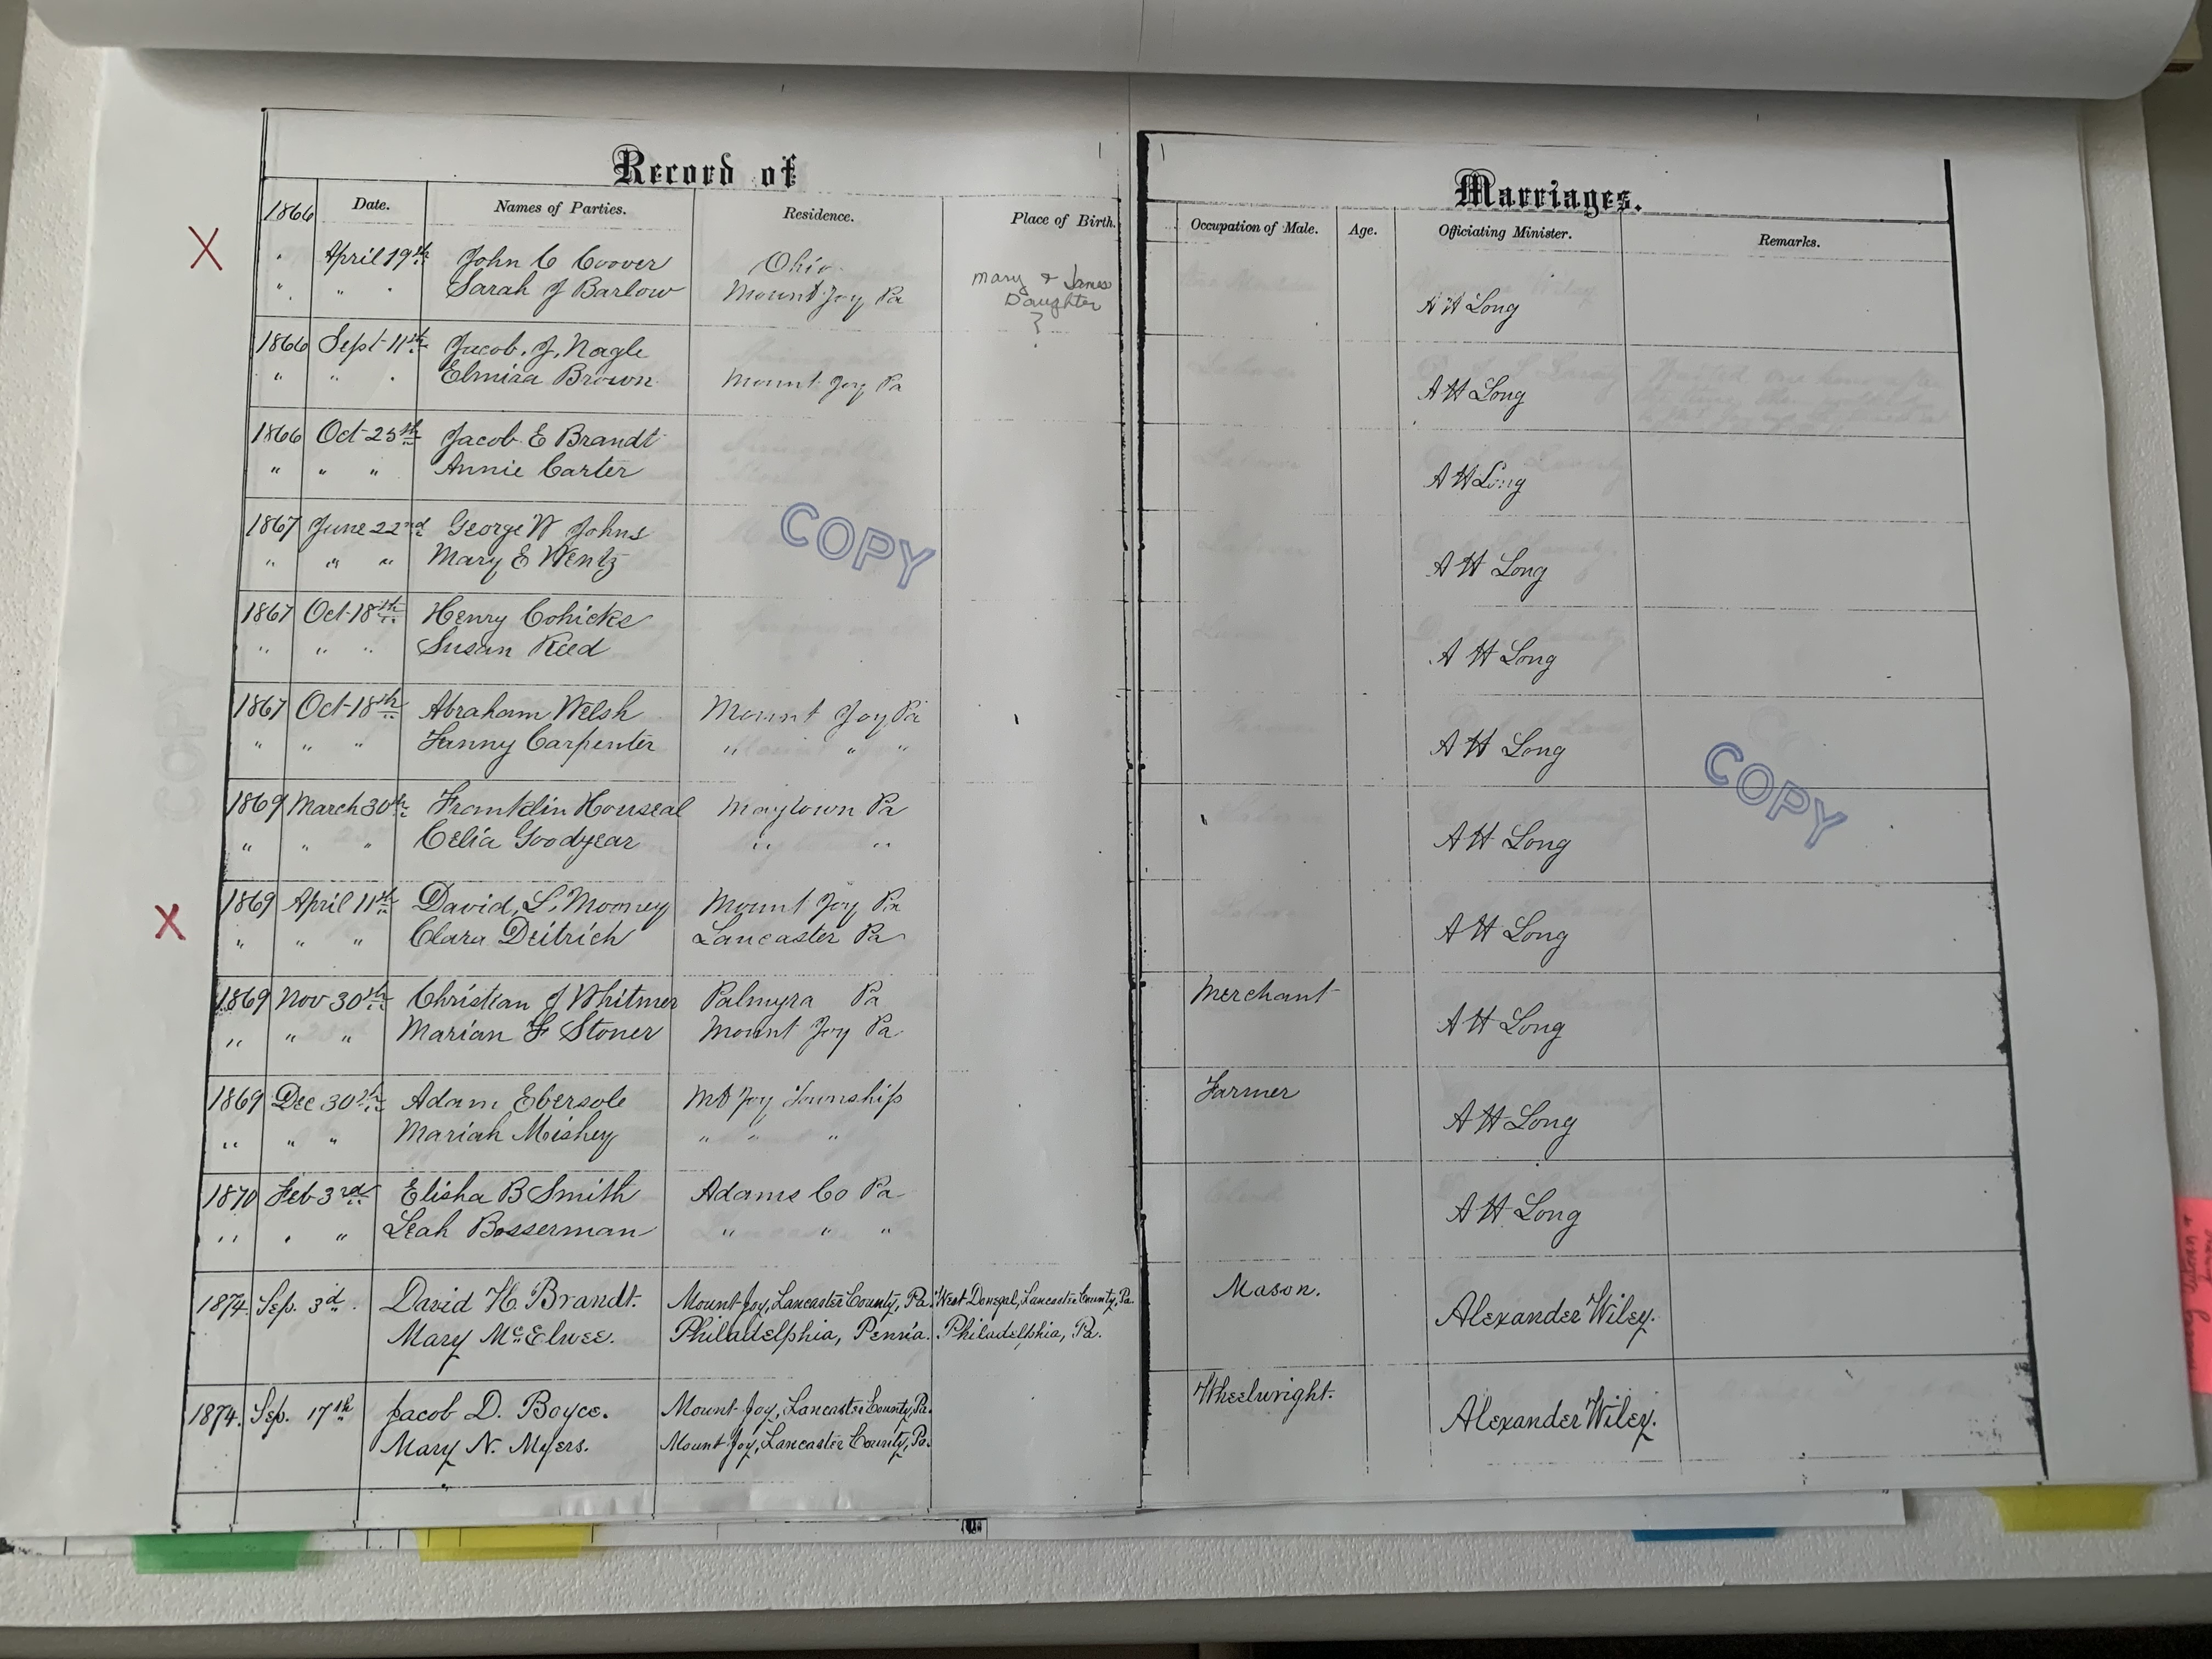 Record of
Marriages.
1866 Date. Names of Parties. Residence. Place of Birth. Occupation of Male. Age. Officiating Minister. Remarks.
X " April 19th John C Coover Ohio
" " " Sarah J Barlow Mount Joy Pa A H Long
Mary & James
Daughter
?
1866 Sept 11th Jacob. J. Nagle
" " " Elmira Brown Mount Joy Pa A H Long
1866 Oct 25th Jacob E Brandt
" " " Annie Carter A H Long
COPY
1867 June 22nd George W Johns
" " " Mary E Wentz A H Long
1867 Oct 18th Henry Cohicks
" " " Susan Reed A H Long
1867 Oct 18th Abraham Welsh Mount Joy Pa
" " " Fanny Carpenter " " " A H Long
COPY
1869 March 30th Franklin Houseal Maytown Pa
" " " Celia Goodyear " " A H Long
X 1869 April 11th David, L, Mooney Mount Joy Pa
" " " Clara Deitrich Lancaster Pa A H Long
1869 Nov 30th Christian J Whitmer Palmyra Pa Merchant
" " " Marian F Stoner Mount Joy Pa A H Long
1869 Dec 30th Adam Ebersole Mt Joy Township Farmer
" " " Mariah Mishey " " " A H Long
1870 Feb 3rd Elisha B Smith Adams Co Pa
" " " Leah Bosserman " " " A H Long
1874. Sep. 3d. David H. Brandt. Mount Joy, Lancaster County, Pa. West Donegal, Lancaster County, Pa. Mason.
Mary McElwee. Philadelphia, Penn'a. Philadelphia, Pa. Alexander Wiley.
1874. Sep. 17th Jacob D. Boyce. Mount Joy, Lancaster County, Pa. Wheelwright.
Mary N. Myers. Mount Joy, Lancaster County, Pa. Alexander Wiley.